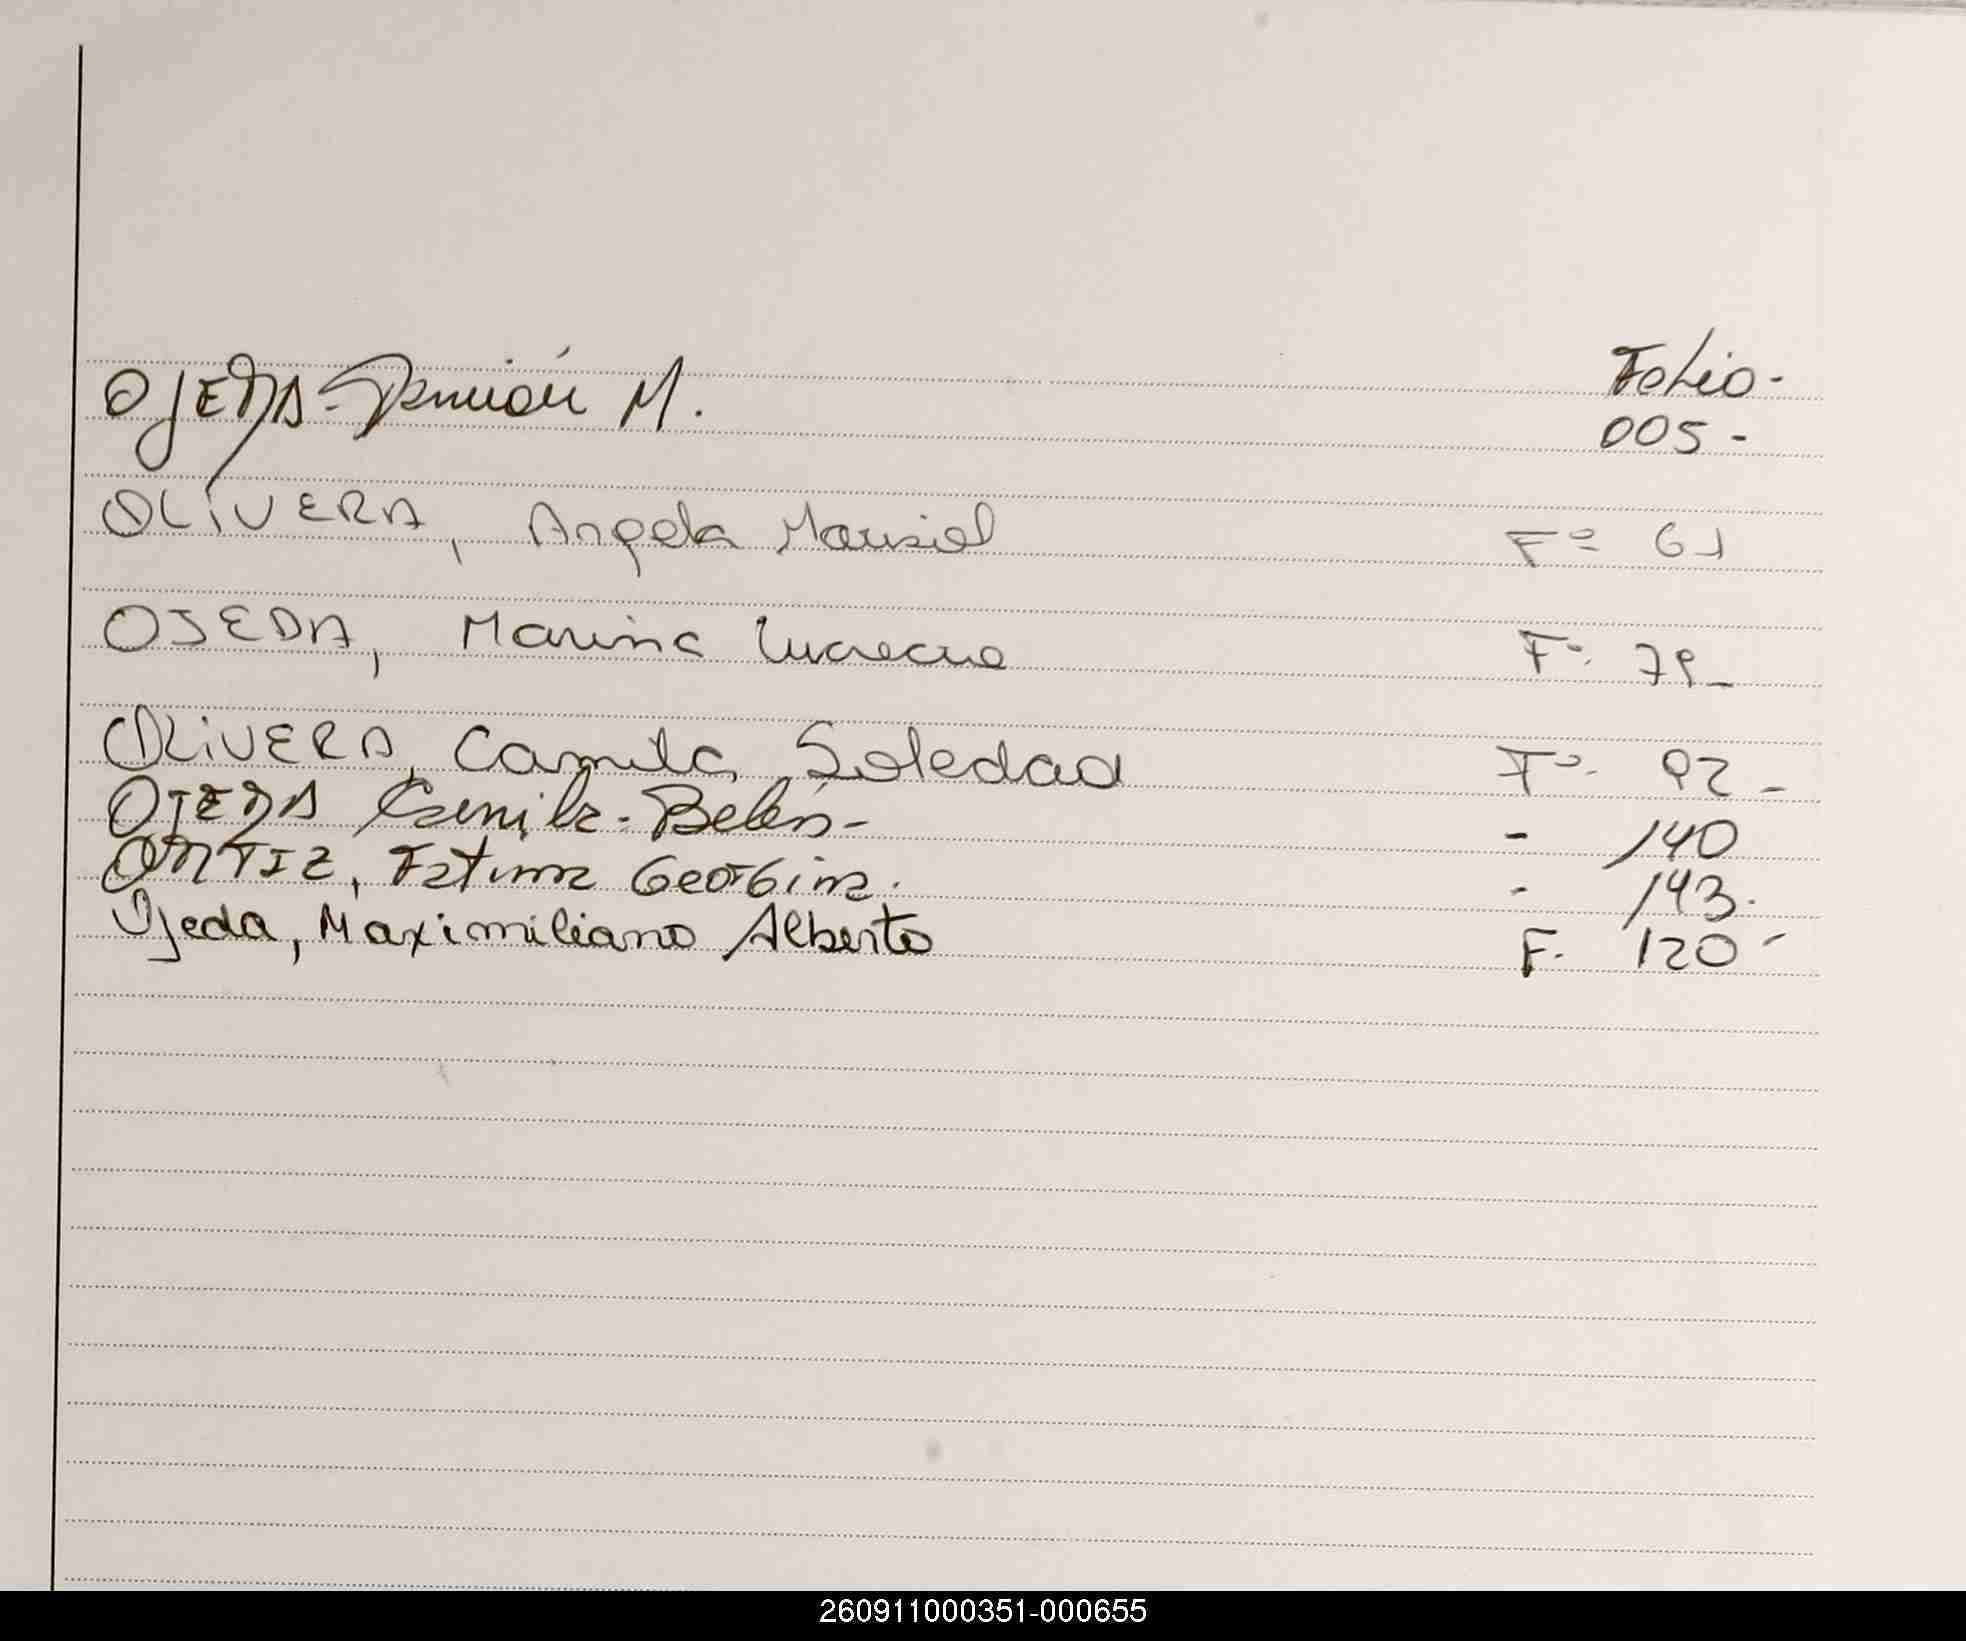 Folio -
OJEDA - Damián M. 005 -
OLIVERA, Angela Marisel Fº 61
OJEDA, Marina Lucrecia Fº 79 -
OLIVERA, Camila Soledad Fº 92 -
OJEDA Camila - Belén - - 140
ORTIZ, Fatima Georgina. - 143.
Ojeda, Maximiliano Alberto F. 120 -
260911000351-000655